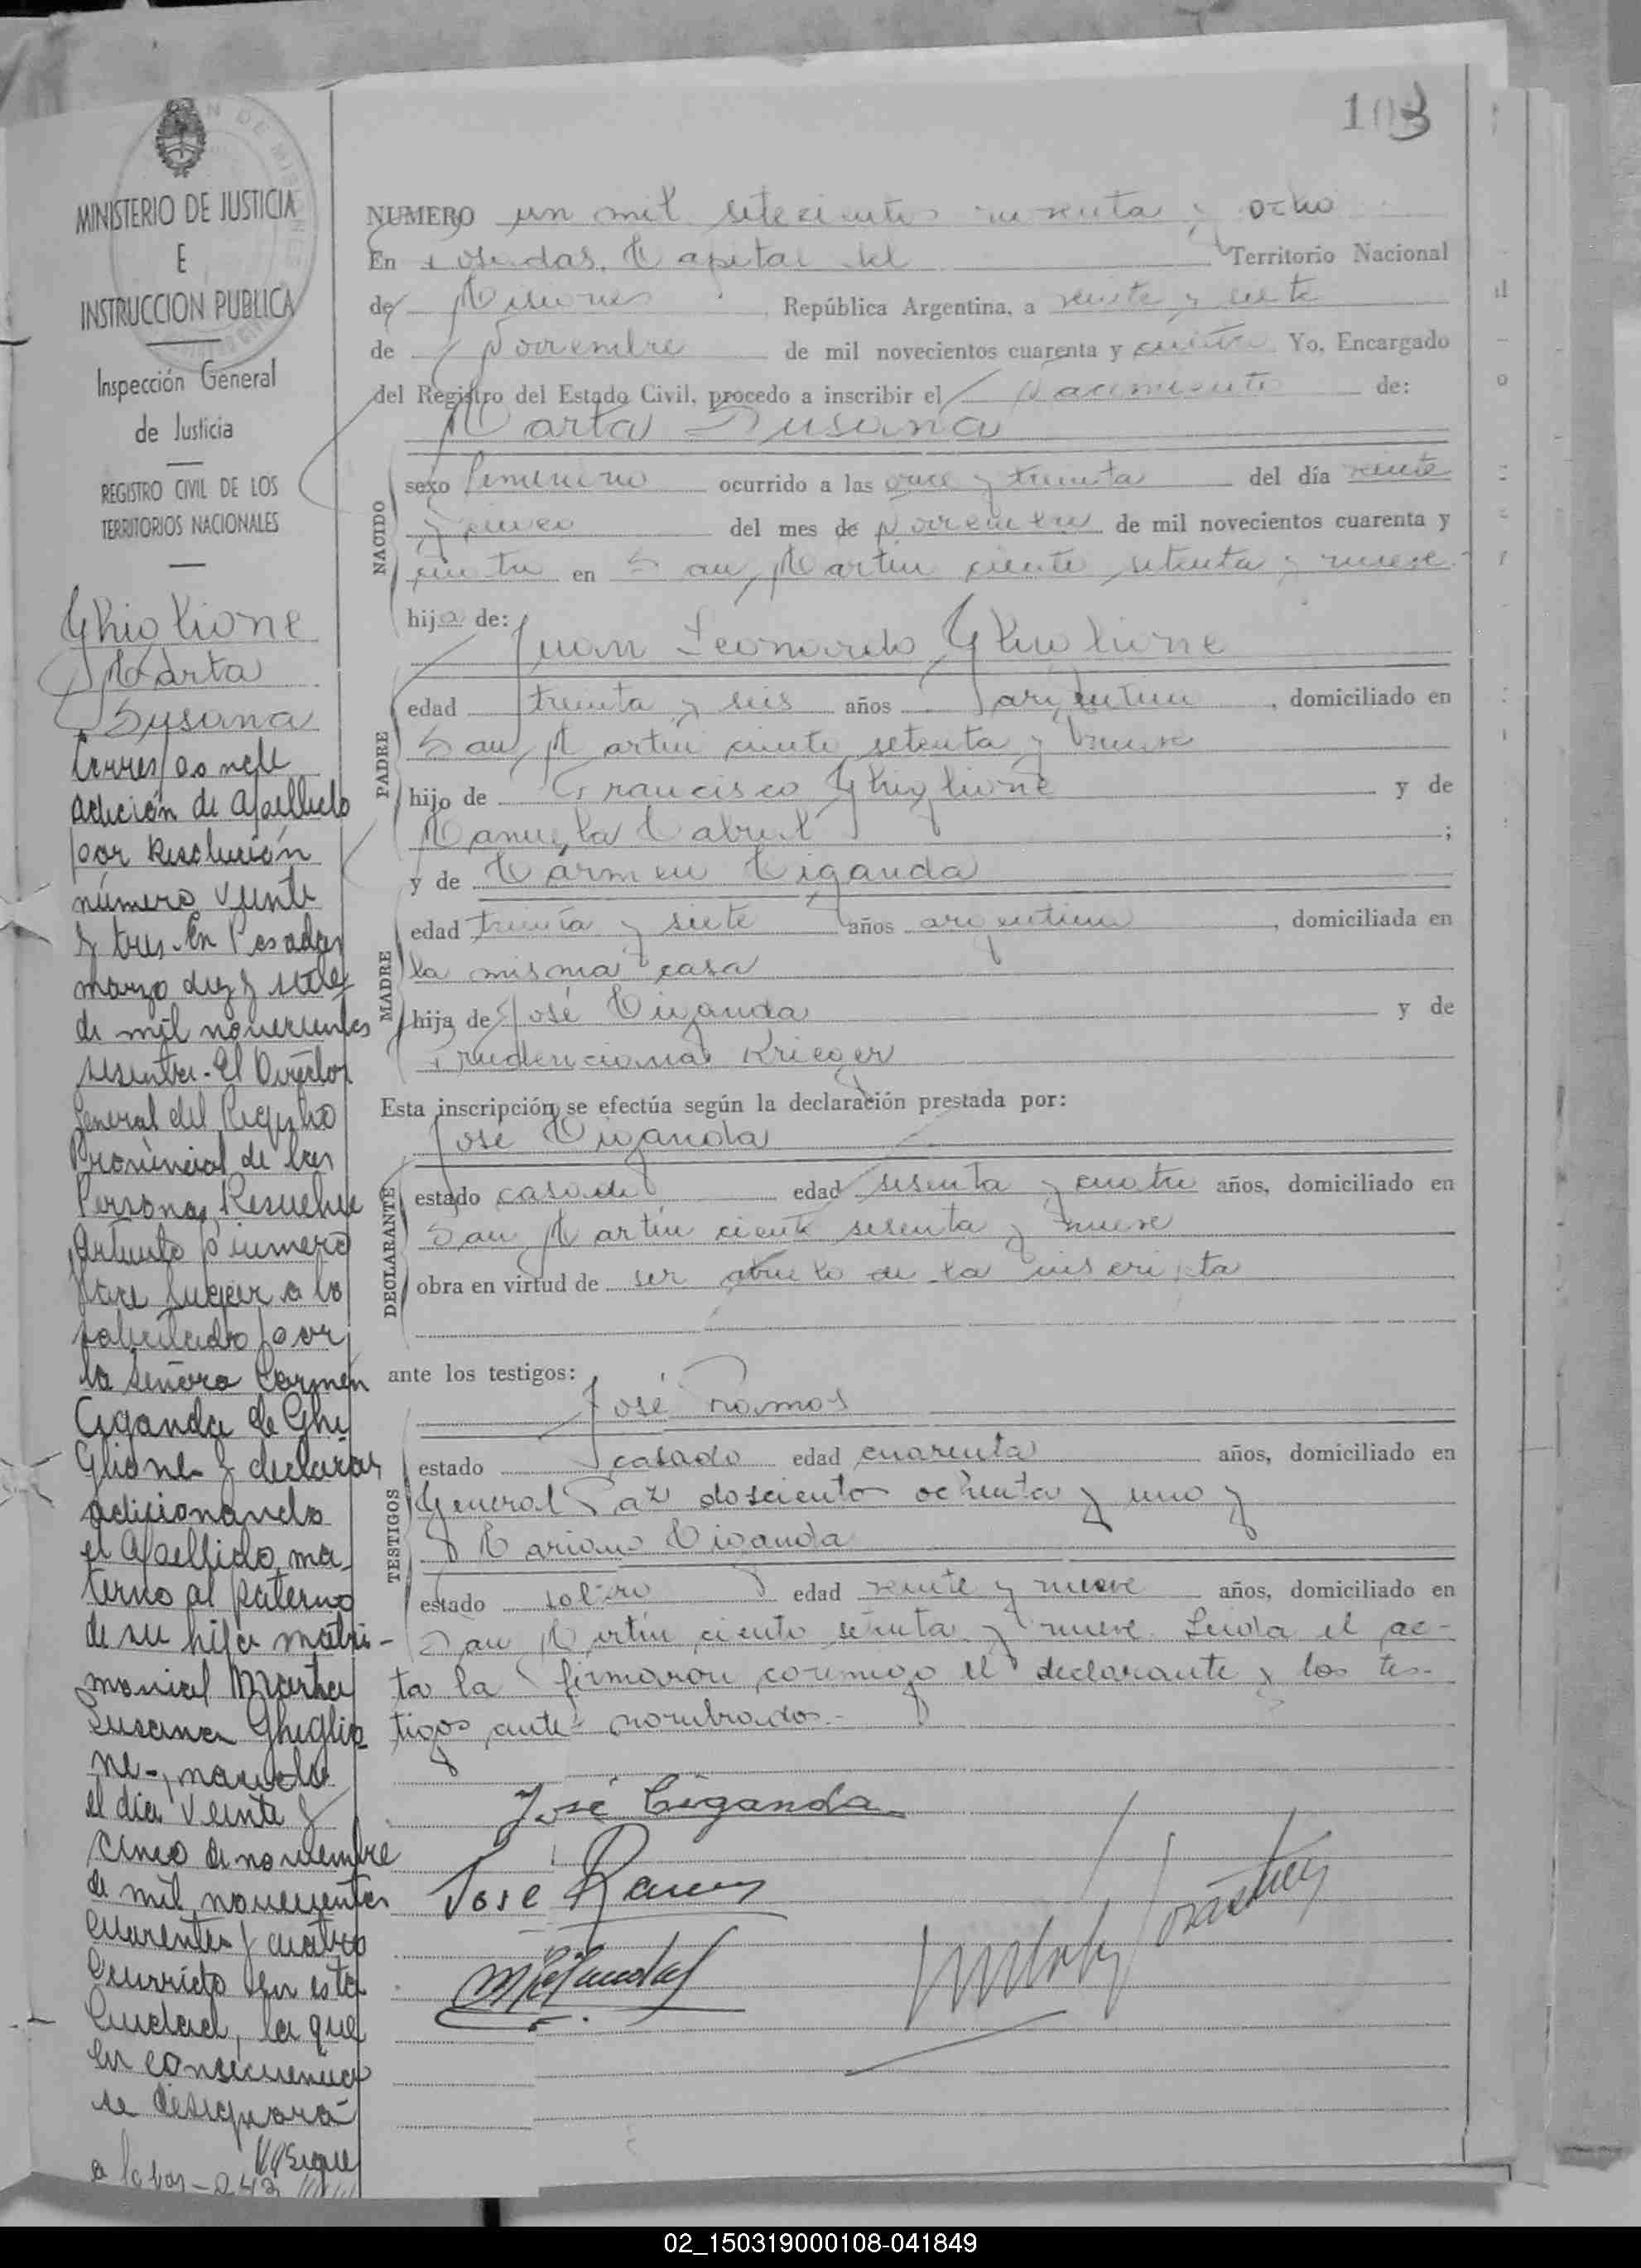 103
MINISTERIO DE JUSTICIA
E
INSTRUCCION PUBLICA
Inspección General
de Justicia
REGISTRO CIVIL DE LOS
TERRITORIOS NACIONALES
Ghiglione
Marta
Susana
Corresponde
adición de apellido
por Resolución
número veinte
y tres. En Posadas
marzo diez y siete
de mil novecientos
sesenta. El Director
General del Registro
Provincial de las
Personas, Resuelve
Artículo primero
Hace lugar a lo
solicitado por
la señora Carmen
Ciganda de Ghi
glione y declarar
adicionando
el apellido ma
terno al paterno
de su hija matri-
monial Marta
Susana Ghiglio
ne-, nacida
el día veinte y
cinco de noviembre
de mil novecientos
cuarenta y cuatro
ocurrido en esta
Ciudad, la que
en consecuencia
se designará
Sigue
NUMERO un mil setecientos y ocho
En Posadas, Capital del Territorio Nacional
de Misiones República Argentina, a veinte y siete
de Noviembre de mil novecientos cuarenta y cuatro Yo, Encargado
del Registro del Estado Civil, procedo a inscribir el Nacimiento de:
Marta Susana
NACIDO
sexo femenino ocurrido a las once y treinta del día veinte
y cinco del mes de Noviembre de mil novecientos cuarenta y
cuatro en San Martín ciento setenta y nueve
hija de: Juan Leonardo Ghiglione
PADRE
edad treinta y seis años argentino, domiciliado en
San Martín ciento setenta y nueve
hijo de Francisco Ghiglione y de
Manuela Cabral;
y de Cármen Ciganda
MADRE
edad treinta y siete años argentina, domiciliada en
la misma casa
hija de José Ciganda y de
Prudenciana Krieger
Esta inscripción se efectúa según la declaración prestada por:
José Ciganda
DECLARANTE
estado casado edad sesenta y cuatro años, domiciliado en
San Martín ciento sesenta y nueve
obra en virtud de ser abuelo de la inscripta
ante los testigos:
José Ramos
TESTIGOS
estado casado edad cuarenta años, domiciliado en
General Paz doscientos ochenta y uno y
Mariano Ciganda
estado soltero edad veinte y nueve años, domiciliado en
San Martín ciento setenta y nueve. Leida el ac-
ta la firmaron conmigo el declarante y los tes-
tigos ante nombrados.-
José Ciganda
José Ramos
MCiganda
02_150319000108-041849